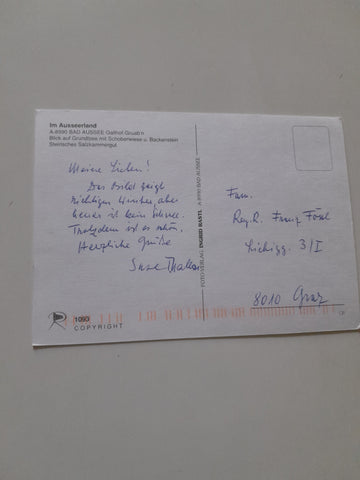 Im Ausseerland
A-8990 BAD AUSSEE Gallhof Gruab'n
Blick auf Grundlsee mit Schoberwiese u. Backenstein
Steirisches Salzkammergut
Meine Lieben!
Das Bild zeigt
richtigen Winter, aber
heuer ist kein Schnee.
Trotzdem ist es schön.
Herzliche Grüße
Susa
FOTO-VERLAG INGRID RASTL A-8990 BAD AUSSEE
Fam.
Reg. R. Franz
3/I
8010 Graz
1093
COPYRIGHT